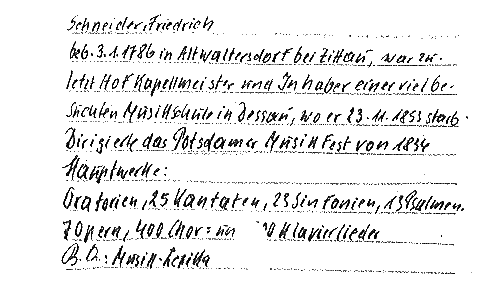 Schneider, Friedrich
geb. 3.1.1786 in Altwaltersdorf bei Zittau, war zu-
letzt Hof Kapellmeister und Inhaber einer viel be-
suchten Musikschule in Dessau, wo er 23.11.1853 starb.
Dirigierte das Potsdamer Musik Fest von 1834
Hauptwerke:
Oratorien, 25 Kantaten, 23 Sinfonien, 13 Psalmen.
7 Opern, 400 Chor= un 0 Klavierlieder
B.Q.: Musik-